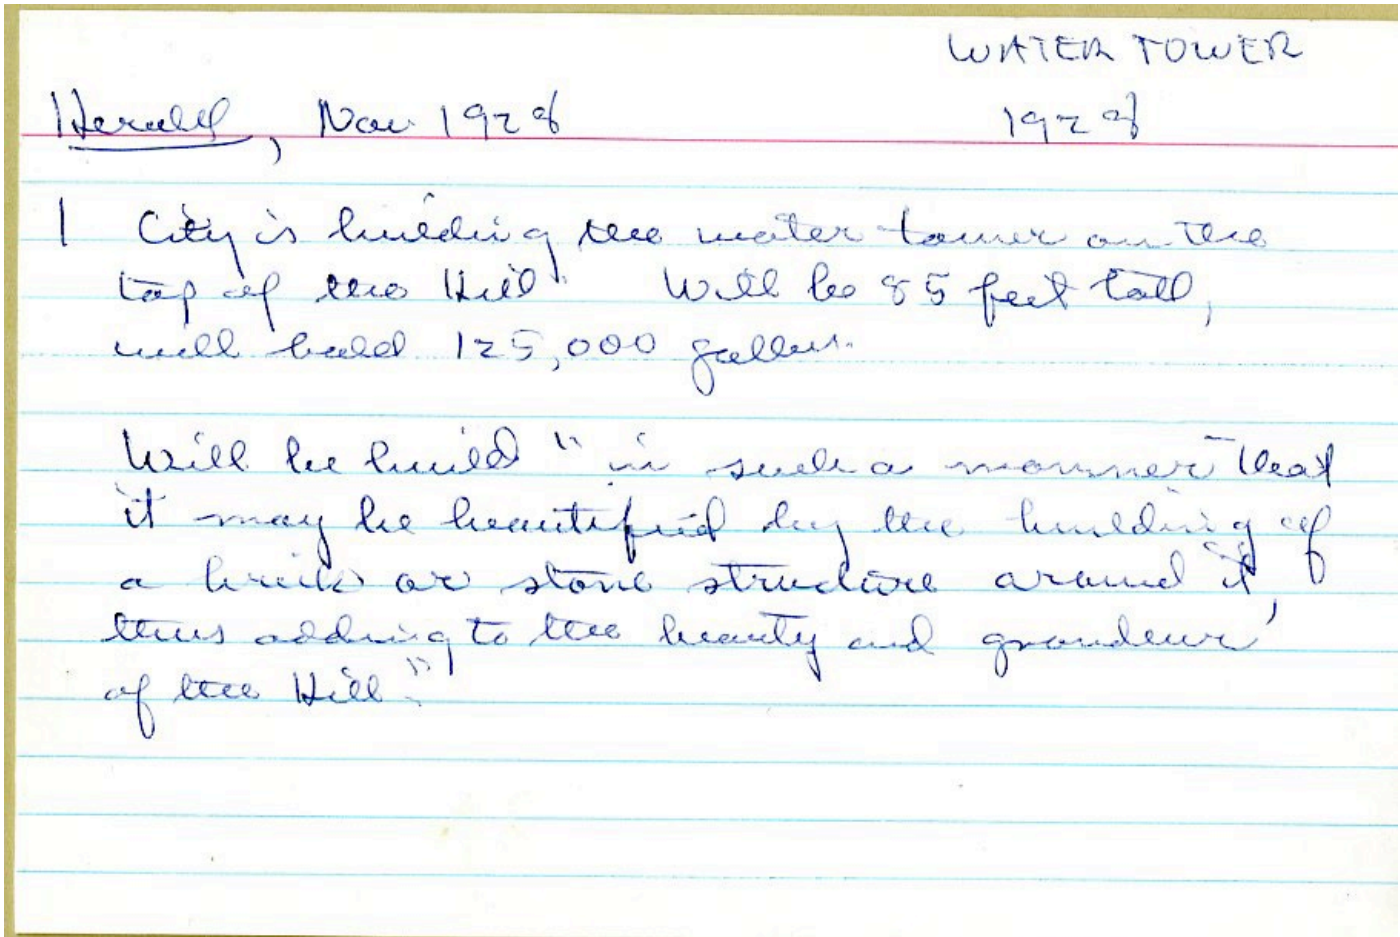 WATER TOWER
Herald, Nov 1928 1928
1 City is building the water tower on the
top of the Hill. Will be 85 feet tall,
will hold 125,000 gallons.
Will be build "in such a manner that
it may be beautified by the building of
a brick or stone structure around it,
thus adding to the beauty and grandeur
of the Hill."